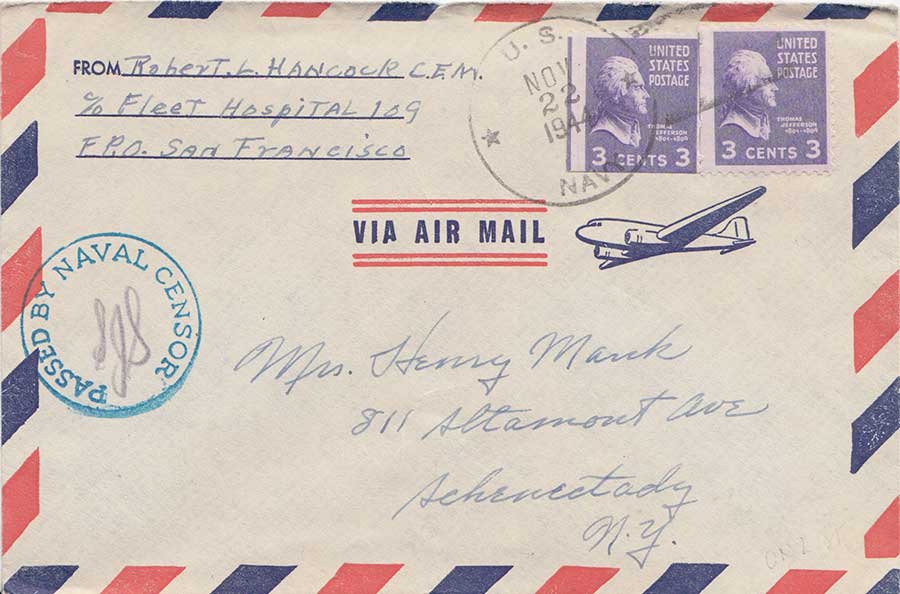 FROM Robert. L. Hancock C.E.M.
c/o Fleet Hospital 109
F.P.O. San Francisco
U. S.
NOV
22
1944
NAVY
UNITED
STATES
POSTAGE
THOMAS
JEFFERSON
1801-1809
3 CENTS 3
UNITED
STATES
POSTAGE
THOMAS
JEFFERSON
1801-1809
3 CENTS 3
VIA AIR MAIL
PASSED BY NAVAL CENSOR
Mrs. Henry Mank
811 Altamont Ave
Schenectady
N.Y.